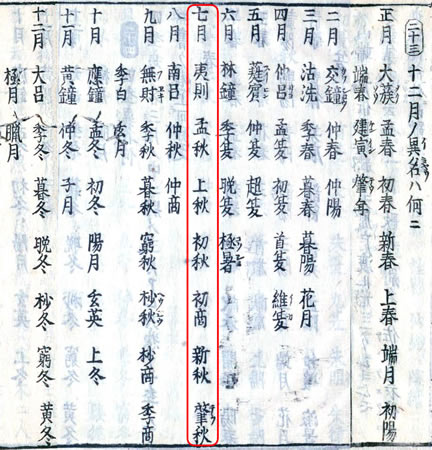 二十三 十二月ノ異名ハ何ニ
正月 大簇 孟春 新春 上春 端月 初陽
端春 建寅 肇年
二月 交鐘 仲春 仲陽
三月 沽洗 季春 暮春 暮陽 花月
四月 仲呂 孟夏 初夏 首夏 維夏
五月 蕤賓 仲夏 超夏
六月 林鐘 季夏 晩夏 極暑
七月 夷則 孟秋 上秋 初秋 初商 新秋 肇秋
八月 南呂 仲秋 仲商
九月 無射 季秋 暮秋 窮秋 杪秋 杪商 季商
季白 玄月
十月 應鐘 孟冬 初冬 陽月 玄英 上冬
十一月 黄鐘 仲冬 子月
十二月 大呂 季冬 暮冬 晩冬 杪冬 窮冬 黄冬
極月 臘月